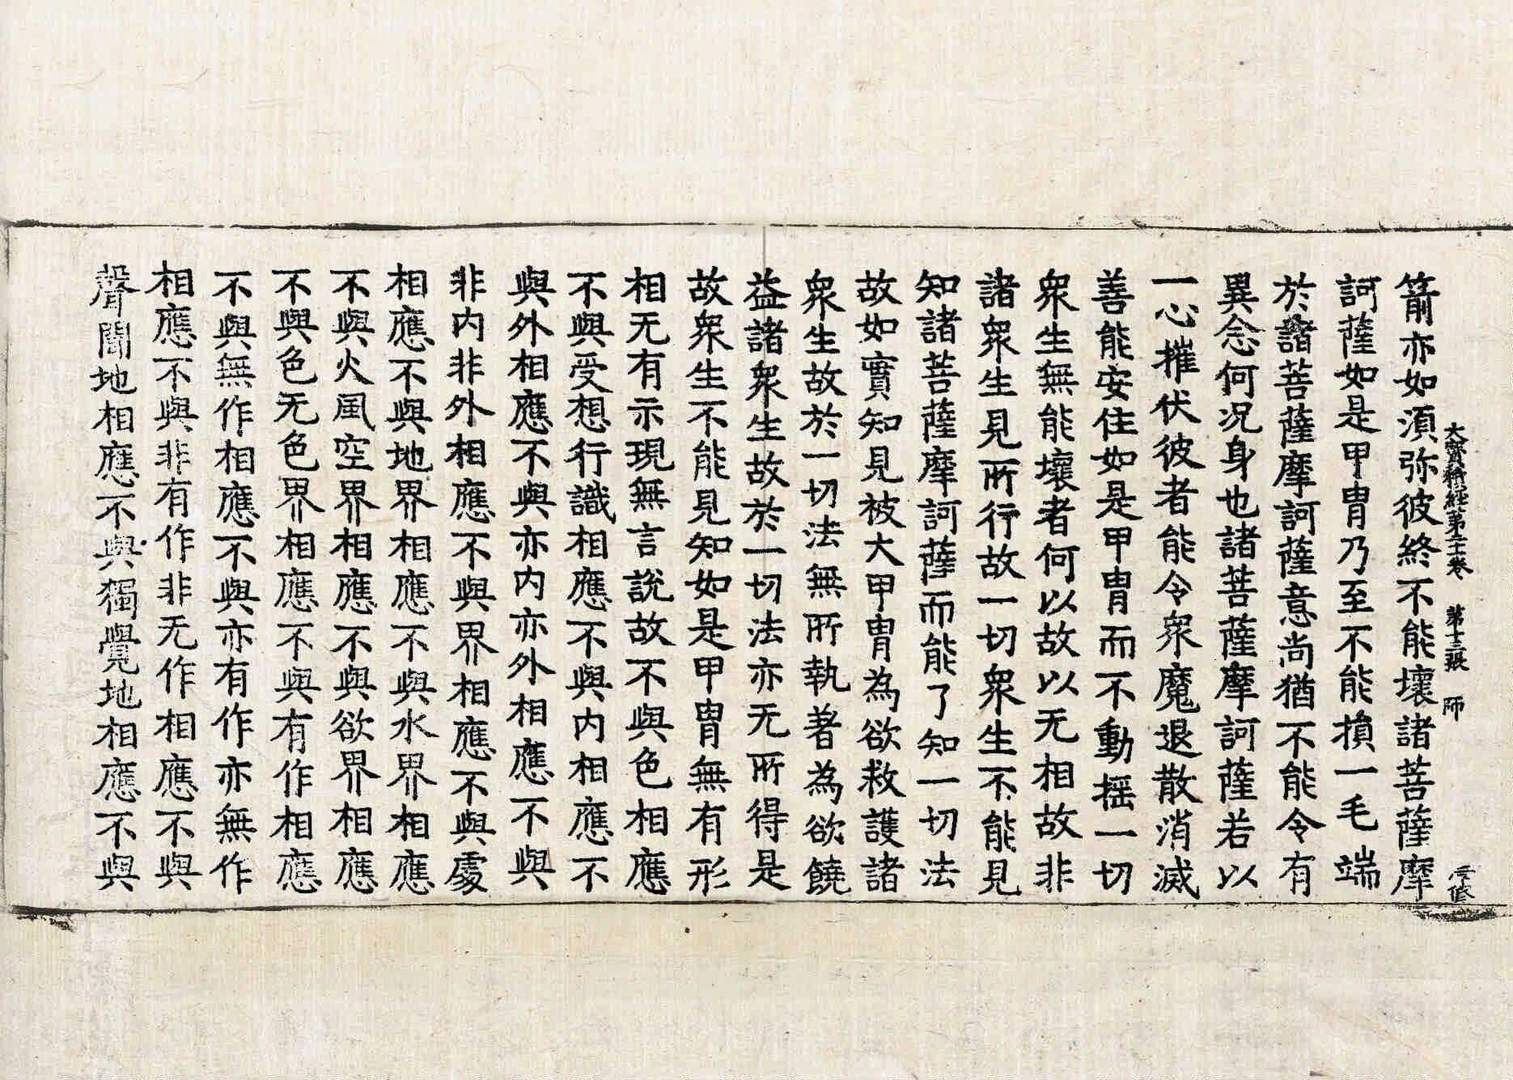 大寶積經第卷 第十三張 師
箭亦如須弥彼終不能壞諸菩薩摩
訶薩如是甲冑乃至不能損一毛端
於諸菩薩摩訶薩意尚猶不能令有
異念何况身也諸菩薩摩訶薩若以
一心摧伏彼者能令衆魔退散消滅
善能安住如是甲冑而不動摇一切
衆生無能壞者何以故以无相故非
諸衆生見所行故一切衆生不能見
知諸菩薩摩訶薩而能了知一切法
故如實知見被大甲冑為欲救護諸
衆生故於一切法無所執著為欲饒
益諸衆生故於一切法亦无所得是
故衆生不能見知如是甲冑無有形
相无有示現無言說故不與色相應
不與受想行識相應不與内相應不
與外相應不與亦内亦外相應不與
非内非外相應不與界相應不與處
相應不與地界相應不與水界相應
不與火風空界相應不與欲界相應
不與色无色界相應不與有作相應
不與無作相應不與亦有作亦無作
相應不與非有作非无作相應不與
聲聞地相應不與獨覺地相應不與